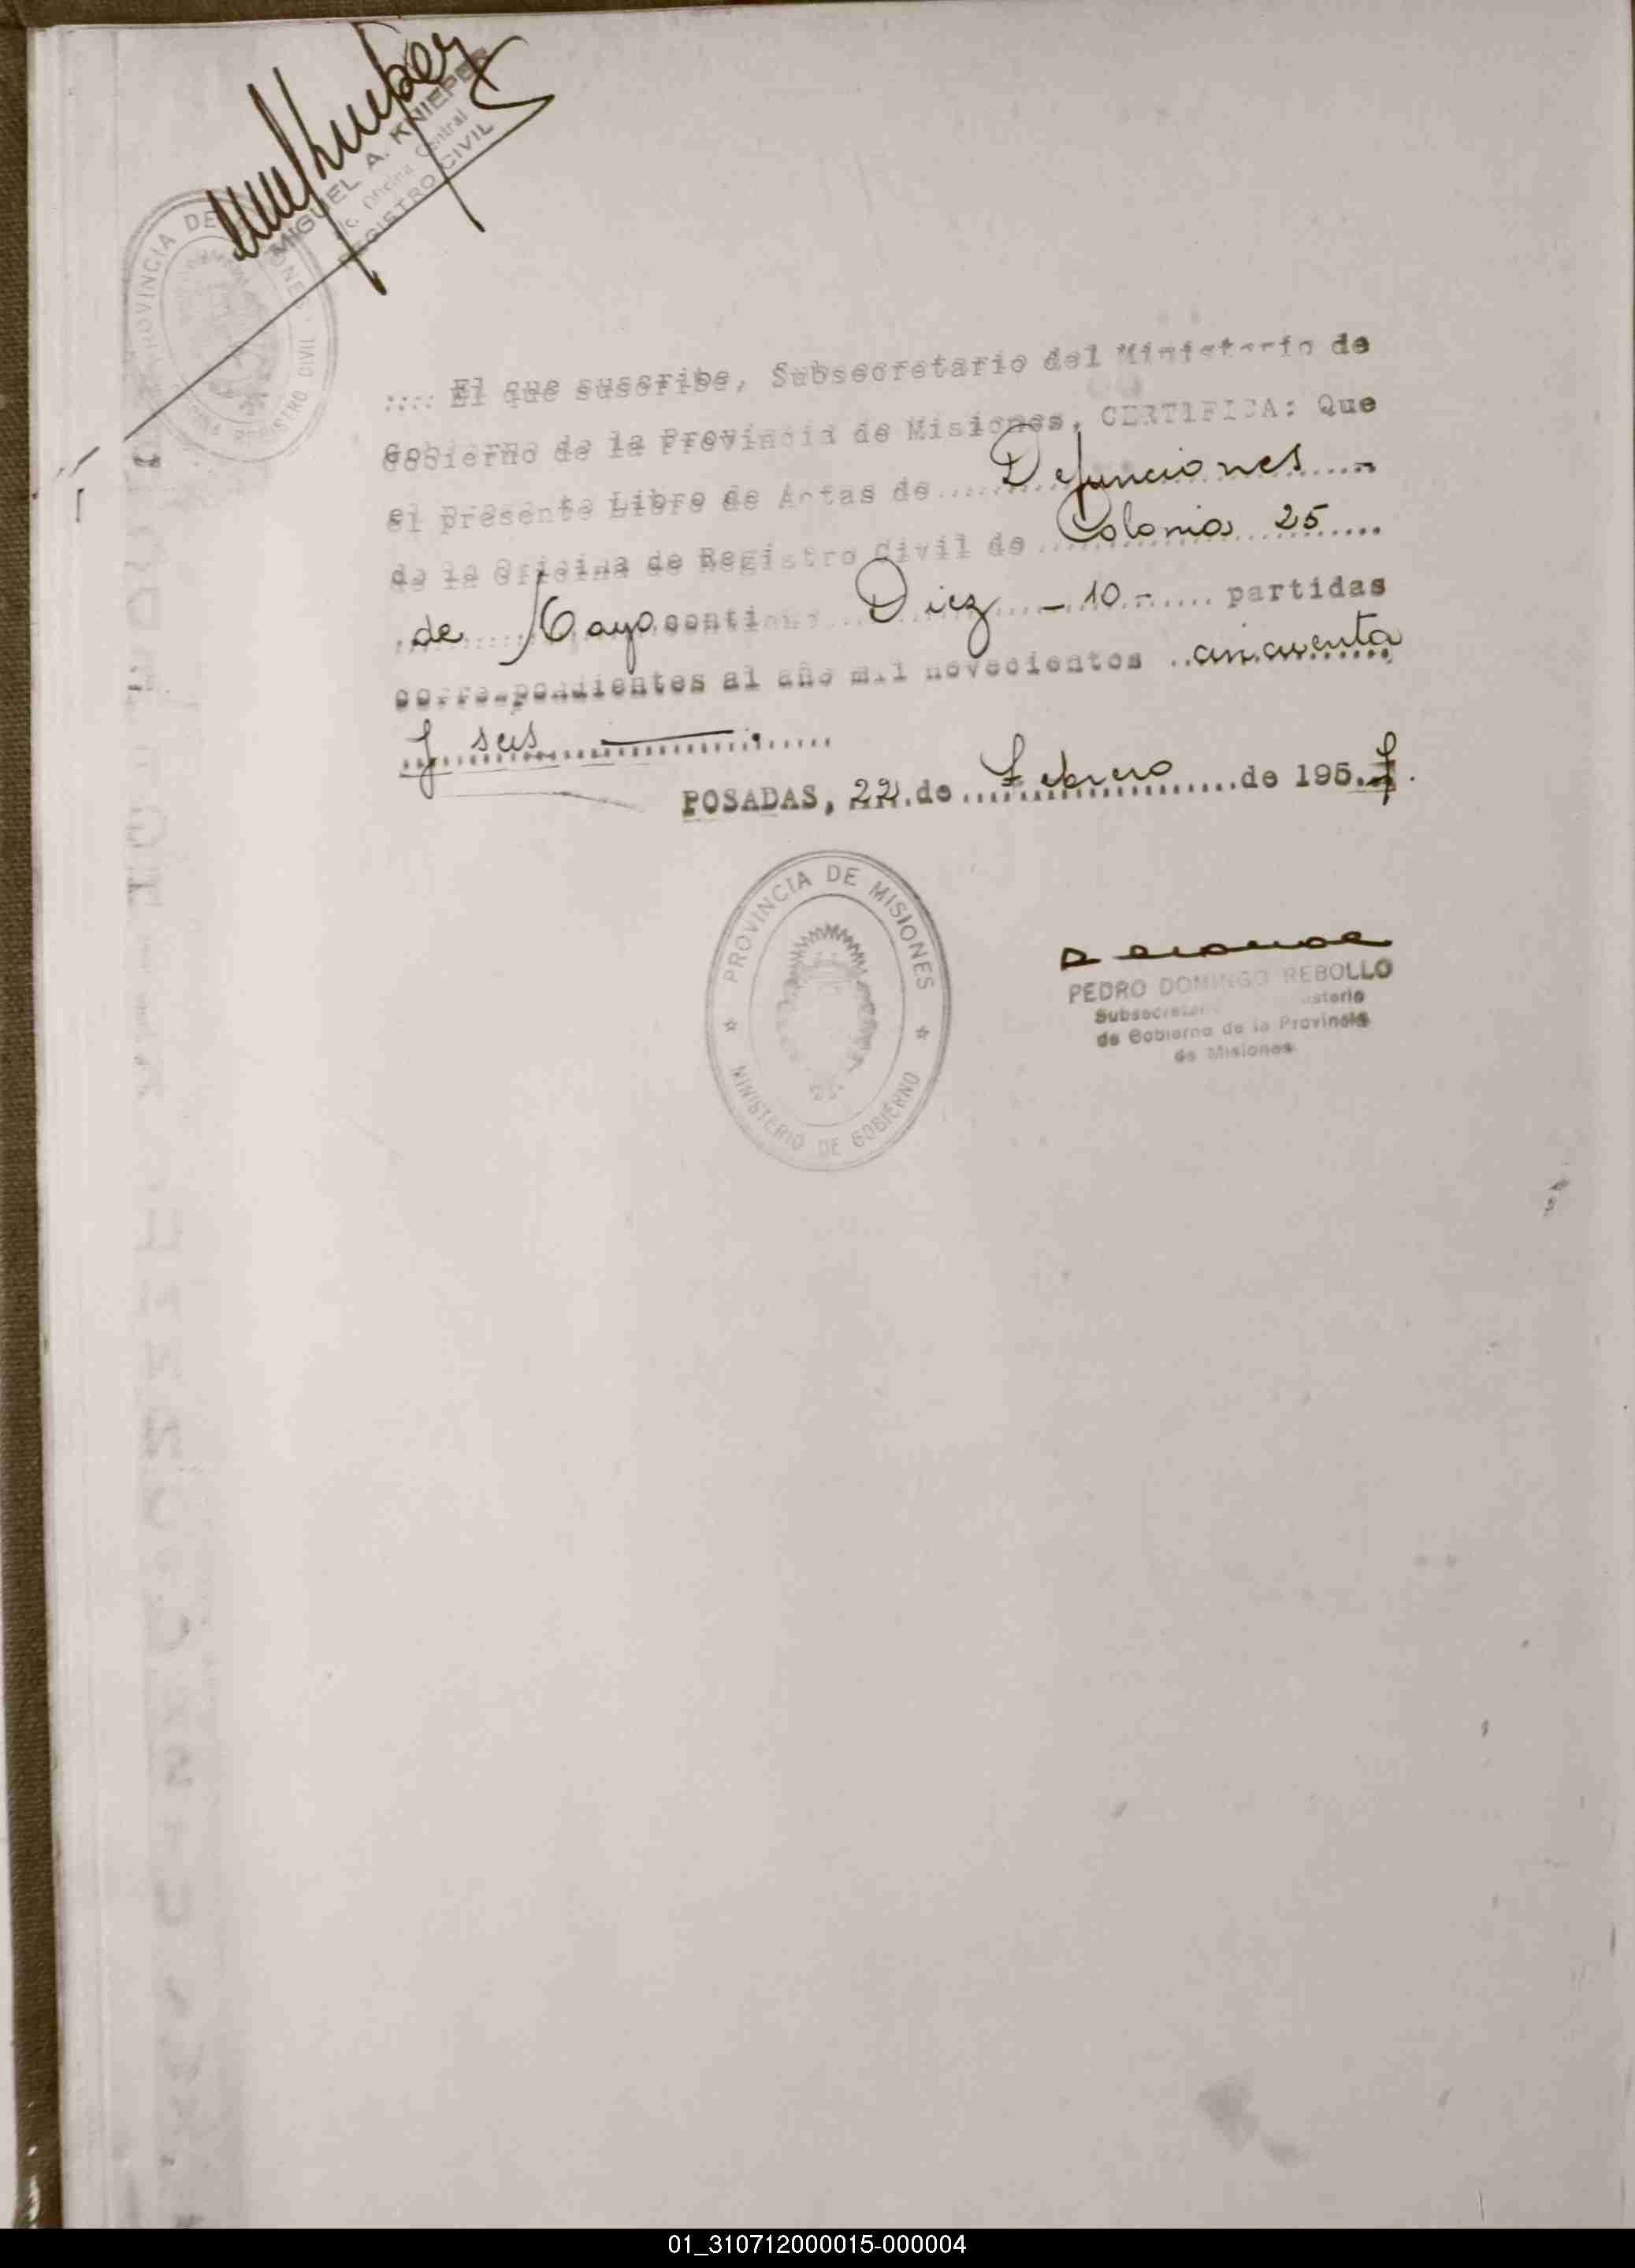 MIGUEL A. KNIEPER
Oficina Central
REGISTRO CIVIL
PROVINCIA DE MISIONES
REGISTRO CIVIL
:::: El que suscribe, Subsecretario del Ministerio de
Gobierno de la Provincia de Misiones, CERTIFICA: Que
el presente Libro de Actas de......Defunciones.....-
de la Oficina de Registro Civil de ..Colonia 25....
.de.....Mayo contiene ...Diez....- 10 -..... partidas
correspondientes al año mil novecientos ..cincuenta
y seis..............
POSADAS, 22.de ....Febrero.....de 195.7.
PROVINCIA DE MISIONES
MINISTERIO DE GOBIERNO
PEDRO DOMINGO REBOLLO
Subsecretario Ministerio
de Gobierno de la Provincia
de Misiones
01_310712000015-000004